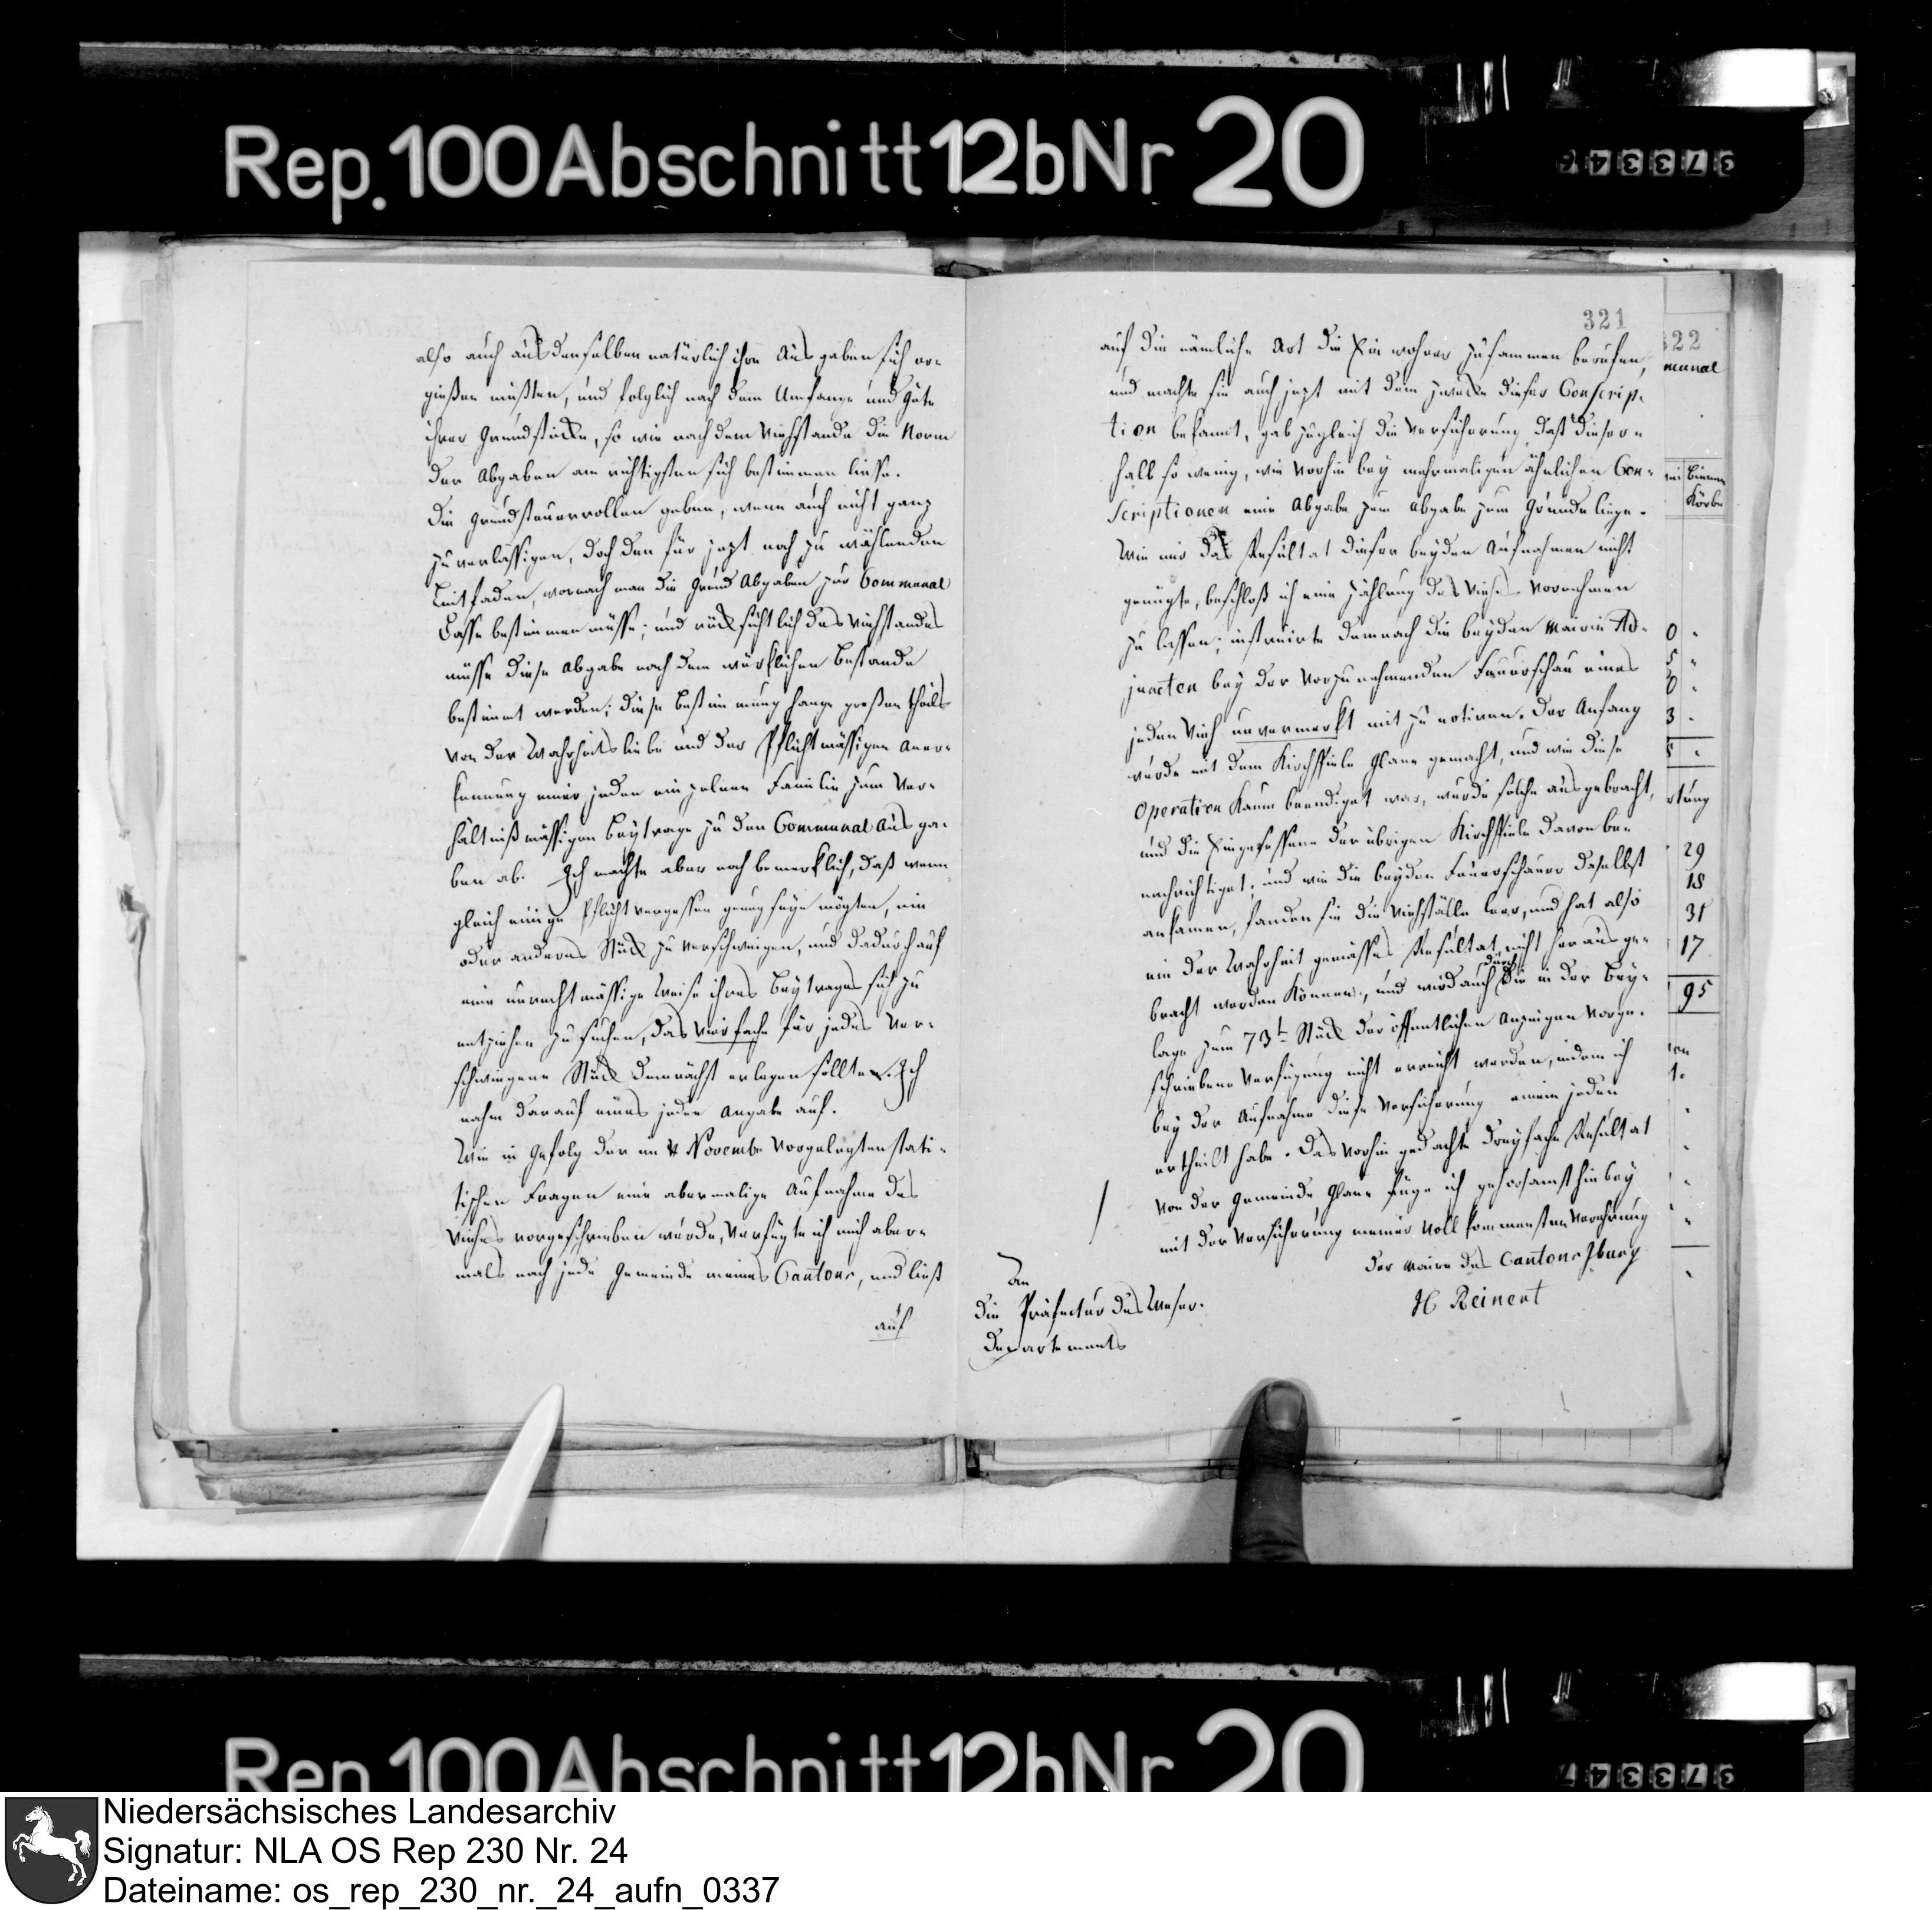 Rep. 100 Abschnitt 12b Nr 20
373346
also auch aus denselben natürlich ihre Ausgaben sich er-
gießen müßten, und folglich nach dem Umfange und Güte
ihrer Grundstücke, so wie nach dem Viehstande die Norm
der Abgaben am richtigsten sich bestimmen liesse.
Die Grundsteuerrollen geben, wenn auch nicht ganz
zuverlässigen, doch den für jezt noch zu wählenden
Leitfaden, wornach man die Grund Abgaben zur Communal
Casse bestimmen müsse; und rücksichtlich des Viehstandes
müsse diese Abgabe nach dem würklichen Bestande
bestimmt werden; diese Bestimmung hange großen theils
von der Wahrheitsliebe und der Pflichtmässigen Aner-
kennung einer jeden einzelnen Familie zum Ver-
hältnißmässigen Beytrage zu den Communal Ausga-
ben ab. Ich machte aber noch bemerklich, daß wenn
gleich einige Pflichtvergessen genug seyn mögten, ein
oder anderes Stück zu verschweigen, und dadurch auf
eine unrechtmässige Weise ihres Beytrages sich zu
entziehen zu suchen, das vierfache für jedes Ver-
schwiegene Stück demnächst erlegen sollten. Ich
nahm darauf eines jeden Angabe auf.
Wie in Gefolg der im Novembr vorgelegten stati-
tischen Fragen eine abermalige Aufnahme des
Viehes vorgeschrieben wurde, verfügte ich mich aber-
mals nach jede Gemeinde meines Cantons, und ließ
auf
321
auf die nämliche Art die Einwohner zusammen berufen,
und machte sie auch jezt mit dem Zwecke dieser Conscrip-
tion bekannt, gab zugleich die Versicherung, daß dieser-
halb so wenig, wie vorhin bey mehrmaligen ähnlichen Con-
scriptionen eine Abgabe zum Abgabe zum Grunde liege.
Wie mir das Resultat dieser beyden Aufnahmen nicht
genügte, beschloß ich eine Zählung des Viehes vornehmen
zu lassen; instruirte demnach die beyden Mairie Ad-
juncten bey der vorzunehmenden Feuerschau eines
jeden Vieh unvermerkt mit zu notiren. Der Anfang
wurde mit dem Kirchspiele Glane gemacht, und wie diese
Operation kaum beendiget war, wurde solche ausgebracht,
und die Eingesessene der übrigen Kirchspiele davon be-
nachrichtiget; und wie die beyden Feuerschauer daselbst
ankamen, fanden sie die Viehställe leer, und hat also
ein der Wahrheit gemässes Resultat nicht herausge-
bracht werden können, und wird auch durch die in der Bey-
lage zum 73t Stück der öffentlichen Anzeigen vorge-
schriebene Verfügung nicht erreicht werden, indem ich
bey der Aufnahme diese Versicherung einem jeden
ertheilt habe. Das vorhin gedachte dreyfache Resultat
von der Gemeinde Glane füge ich gehorsamst hiebey
mit der Versicherung meiner vollkommensten Verehrung
Der Maire des Cantons Iburg
H Reinert
An
die Präfectur des Weser-
Departements
322
munal
Bienen
Körbe
0
5
0
3
29
18
31
17
95
Rep. 100 Abschnitt 12b Nr 20
373347
Niedersächsisches Landesarchiv
Signatur: NLA OS Rep 230 Nr. 24
Dateiname: os_rep_230_nr._24_aufn_0337